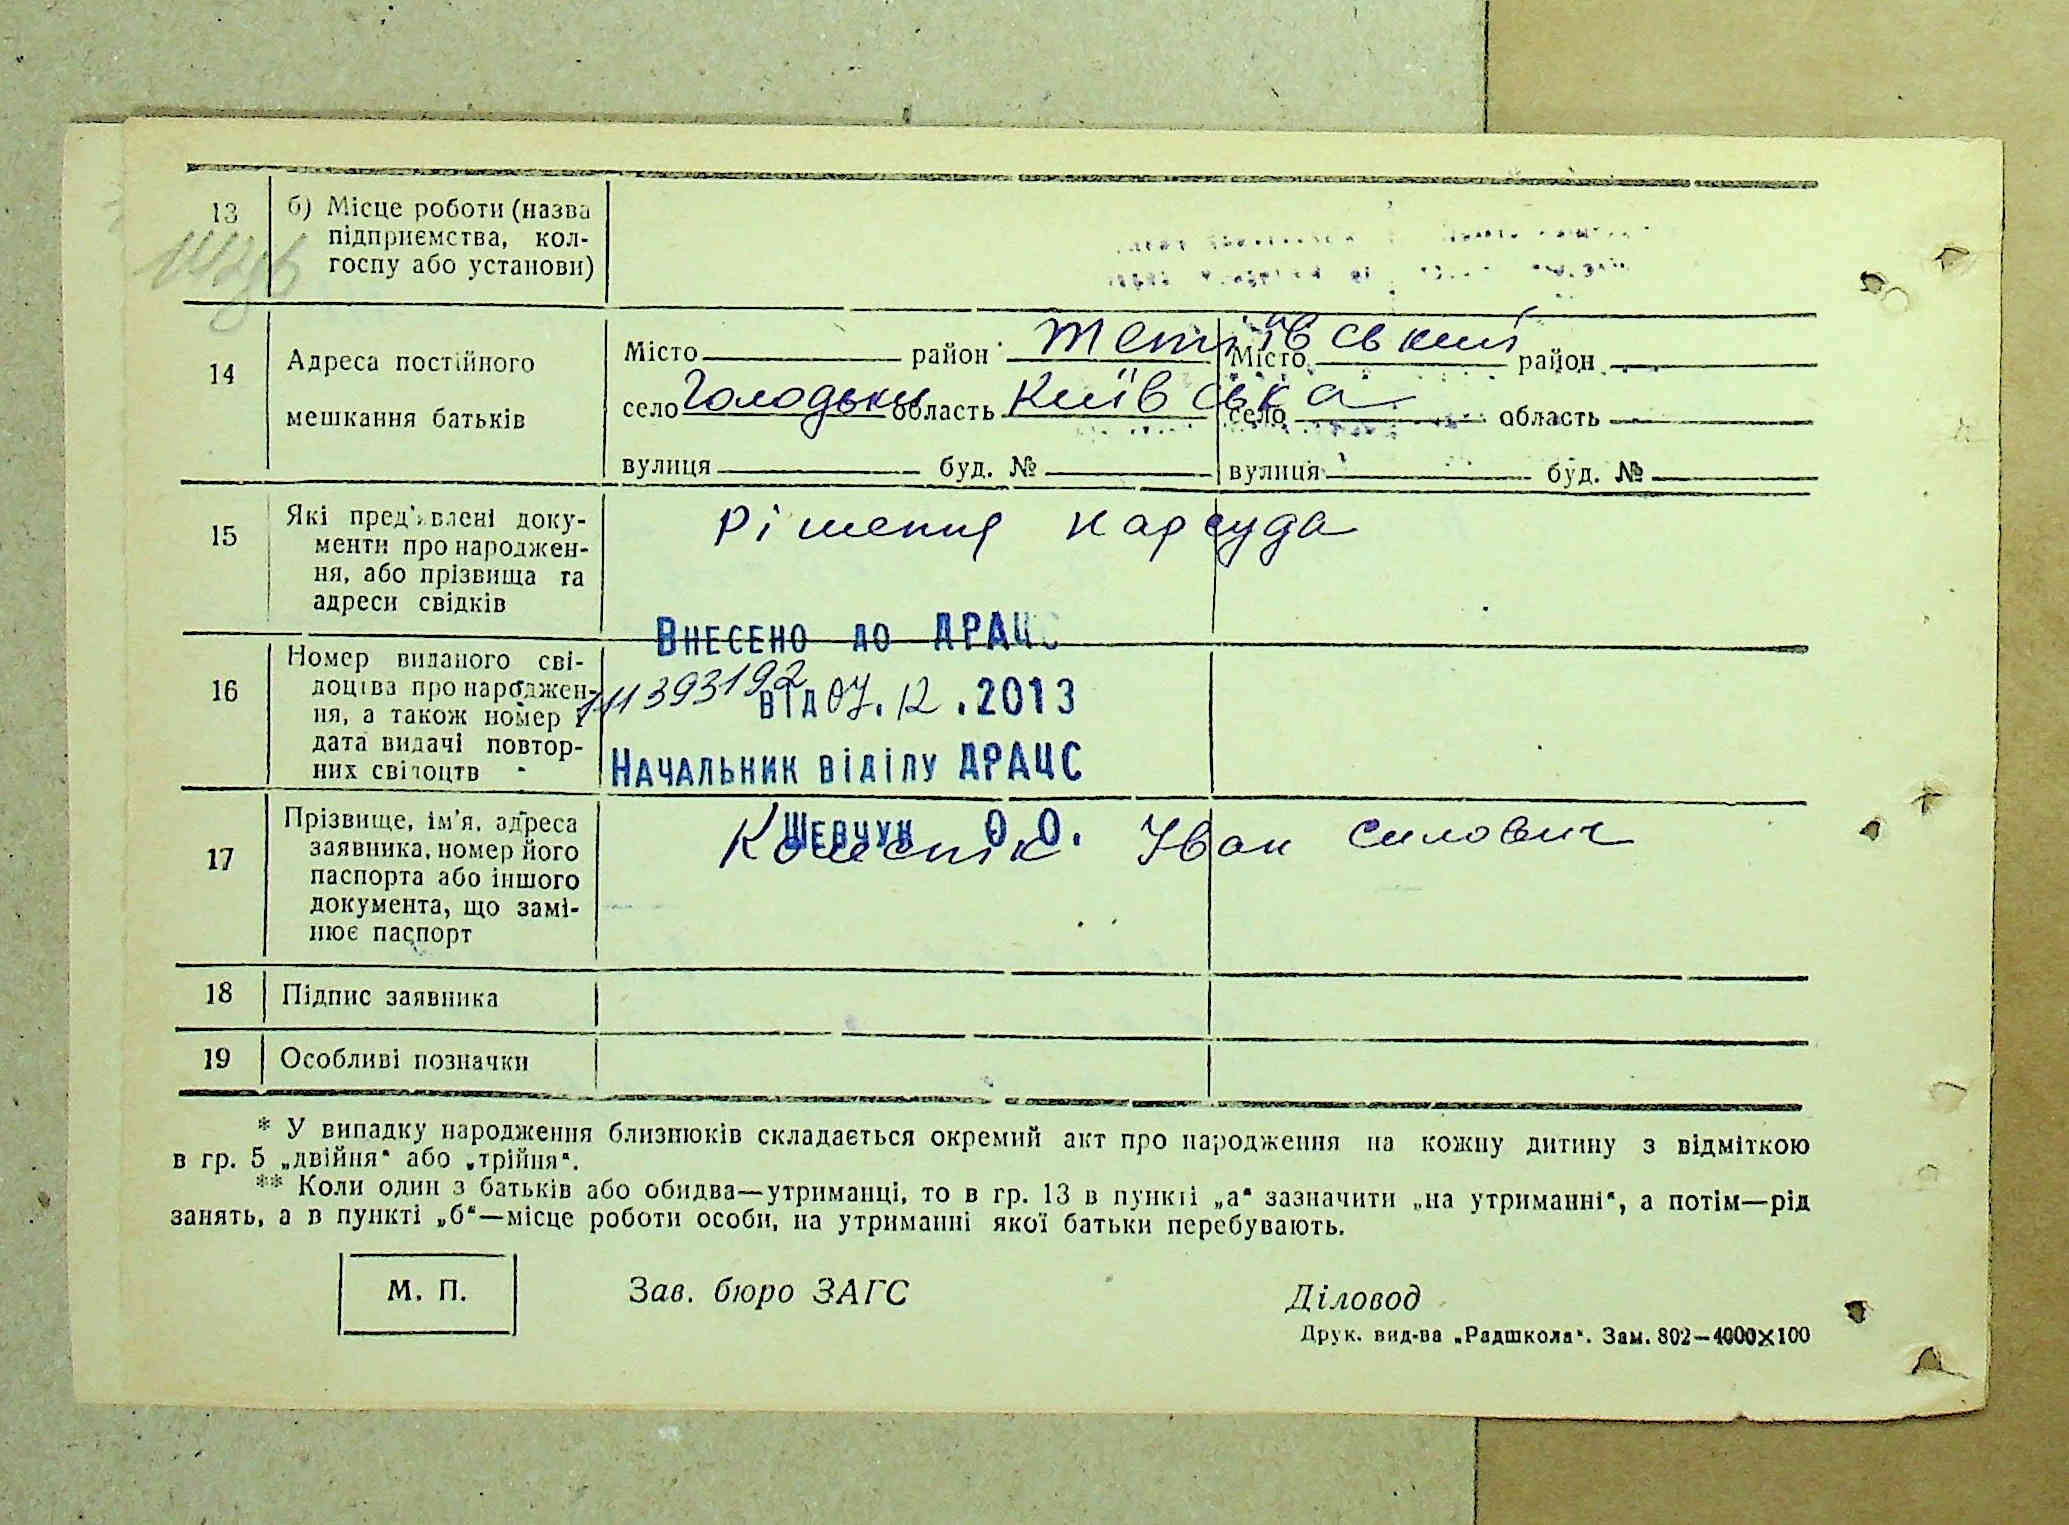 13
б) Місце роботи (назва
підприємства, кол-
госпу або установи)
14
Адреса постійного
мешкання батьків
Місто район Тетіївський Місто район
село Голодьки область Київська село область
вулиця буд. № вулиця буд. №
15
Які пред'явлені доку-
менти про народжен-
ня, або прізвища та
адреси свідків
рішення нарсуда
Внесено до ДРАЦС
16
Номер виданого сві-
доцтва про народжен-
ня, а також номер і
дата видачі повтор-
них свідоцтв
від 07.12.2013
Начальник віділу ДРАЦС
Шевчук О.О.
17
Прізвище, ім'я, адреса
заявника, номер його
паспорта або іншого
документа, що замі-
нює паспорт
Колеснік Іван Силович
18
Підпис заявника
19
Особливі позначки
* У випадку народження близнюків складається окремий акт про народження на кожну дитину з відміткою
в гр. 5 „двійня“ або „трійня“.
** Коли один з батьків або обидва—утриманці, то в гр. 13 в пункті „а“ зазначити „на утриманні“, а потім—рід
занять, а в пункті „б“—місце роботи особи, на утриманні якої батьки перебувають.
М. П.
Зав. бюро ЗАГС
Діловод
Друк. вид-ва „Радшкола“. Зам. 802—4000×100